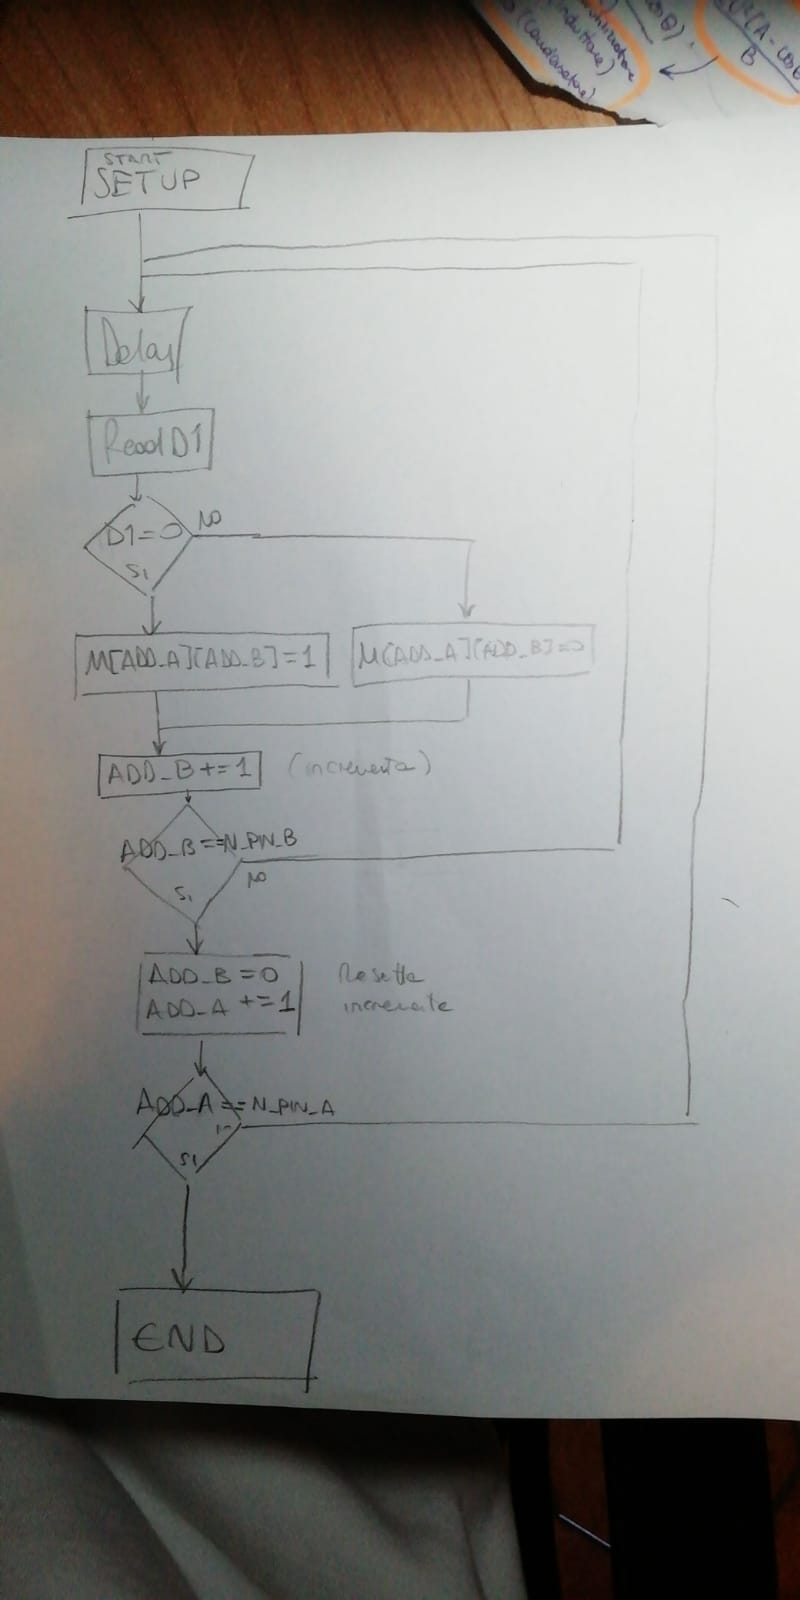 (induttore)
(condensatore)
B
START
SETUP
Delay
Read D1
D1=0
NO
SI
M[ADD_A][ADD_B]=1
M[ADD_A][ADD_B]=0
ADD_B+=1
(incrementa)
ADD_B==N_PIN_B
SI
NO
ADD_B=0
Resetta
ADD_A +=1
incrementa
ADD_A==N_PIN_A
SI
END